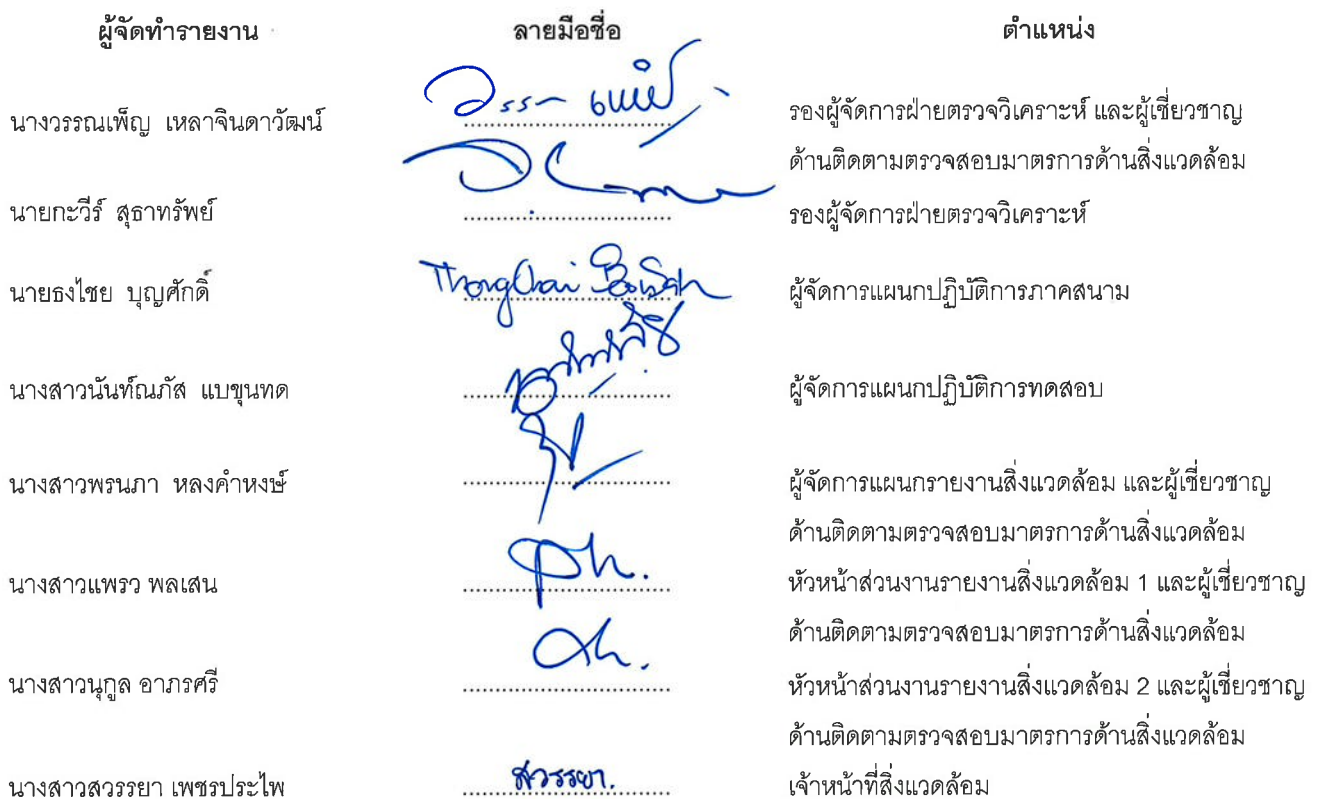 ผู้จัดทำรายงาน ลายมือชื่อ ตำแหน่ง
นางวรรณเพ็ญ เหลาจินดาวัฒน์ รองผู้จัดการฝ่ายตรวจวิเคราะห์ และผู้เชี่ยวชาญ
ด้านติดตามตรวจสอบมาตรการด้านสิ่งแวดล้อม
นายกะวีร์ สุธาทรัพย์ รองผู้จัดการฝ่ายตรวจวิเคราะห์
นายธงไชย บุญศักดิ์ ThongChai ผู้จัดการแผนกปฏิบัติการภาคสนาม
นางสาวนันท์ณภัส แบขุนทด ผู้จัดการแผนกปฏิบัติการทดสอบ
นางสาวพรนภา หลงคำหงษ์ ผู้จัดการแผนกรายงานสิ่งแวดล้อม และผู้เชี่ยวชาญ
ด้านติดตามตรวจสอบมาตรการด้านสิ่งแวดล้อม
นางสาวแพรว พลเสน หัวหน้าส่วนงานรายงานสิ่งแวดล้อม 1 และผู้เชี่ยวชาญ
ด้านติดตามตรวจสอบมาตรการด้านสิ่งแวดล้อม
นางสาวนุกูล อาภรศรี หัวหน้าส่วนงานรายงานสิ่งแวดล้อม 2 และผู้เชี่ยวชาญ
ด้านติดตามตรวจสอบมาตรการด้านสิ่งแวดล้อม
นางสาวสวรรยา เพชรประไพ สวรรยา. เจ้าหน้าที่สิ่งแวดล้อม